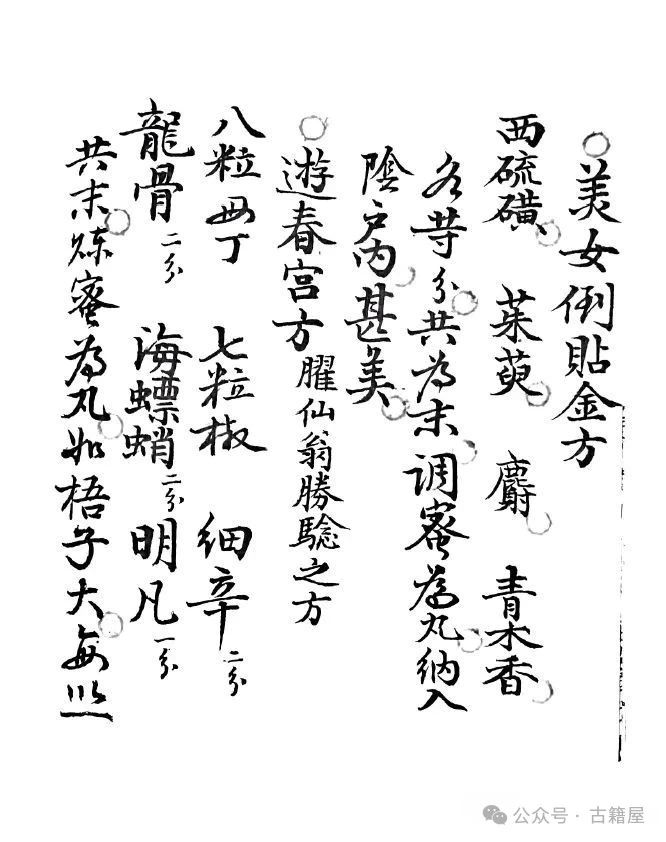 美女倒貼金方
西硫磺 茱萸 麝 青木香
各苛分共為末调蜜為丸納入
陰户内甚美
遊春宫方 臞仙翁勝騐之方
八粒毋丁 七粒椒 细辛二分
龍骨二分 海螵蛸二分 明凡一分
共末炼蜜為丸如梧子大每以一
公众号·古籍屋